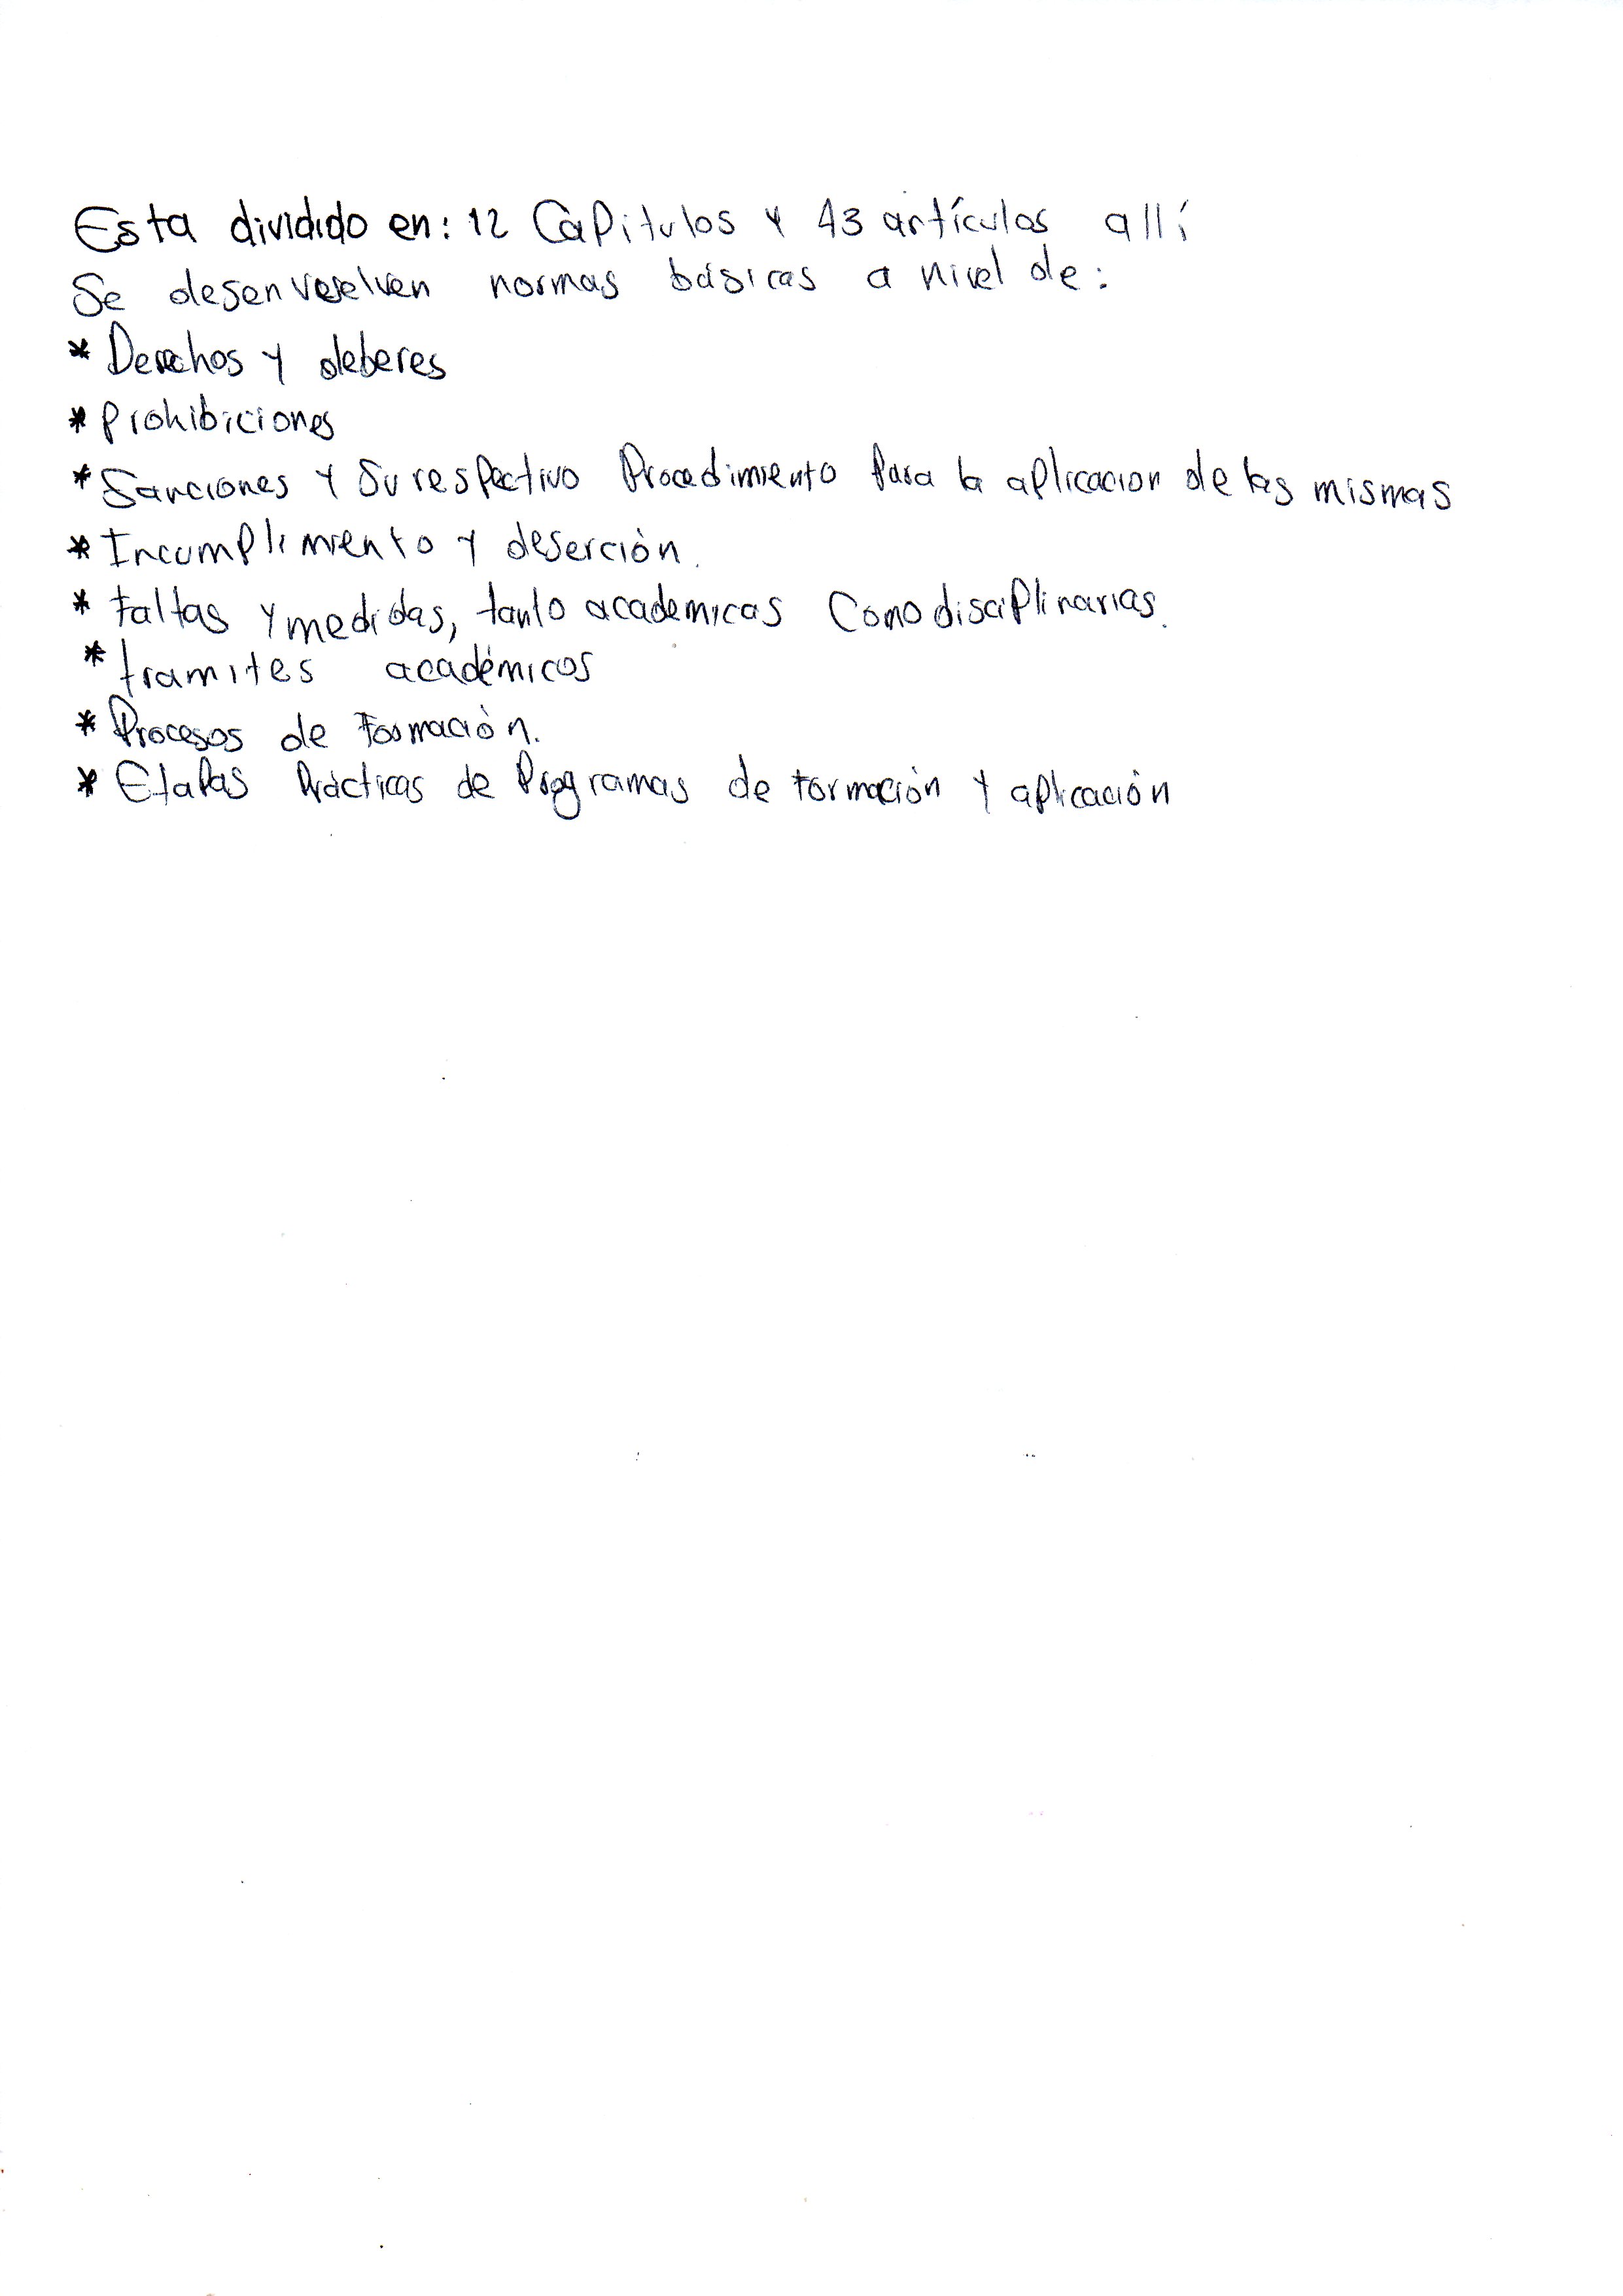 Esta dividido en: 12 Capitulos y 43 artículos allí
Se desenvuelven normas básicas a nivel de:
* Derechos y deberes
* Prohibiciones
* Sanciones y su respectivo Procedimiento Para la aplicacion de las mismas
* Incumplimiento y deserción.
* faltas y medidas, tanto academicas Como disciplinarias.
* tramites académicos
* Procesos de formación.
* Etapas Prácticas de Programas de formación y aplicación